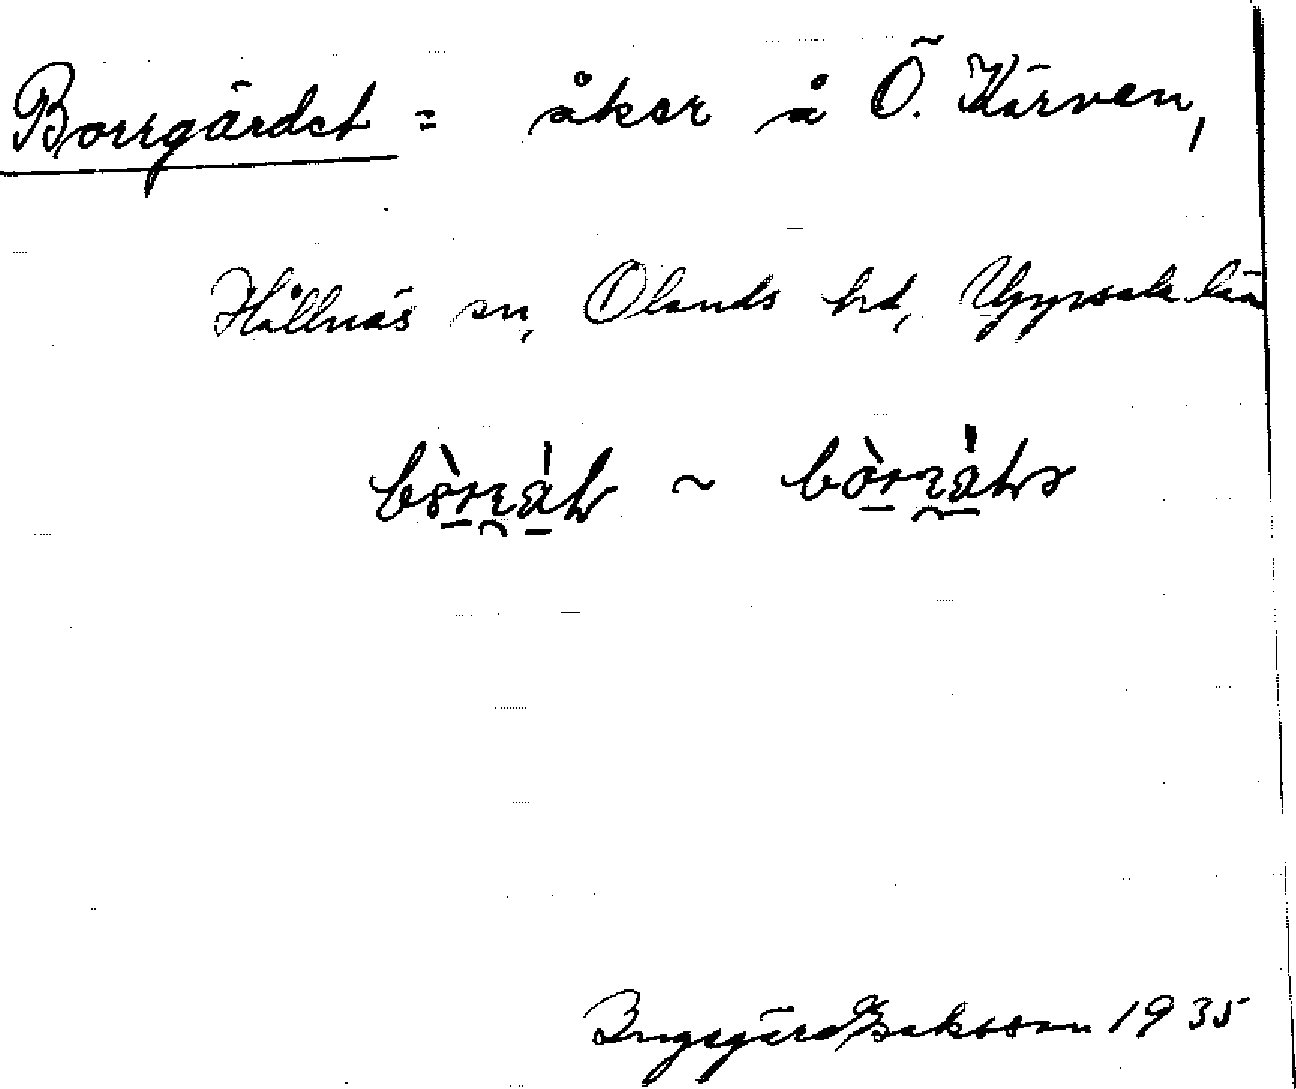 Borrgärdet = åker å Ö. Kärven,
Hållnäs sn, Olands hd, Uppsala län
~
Ingegärd Isaksson 1935